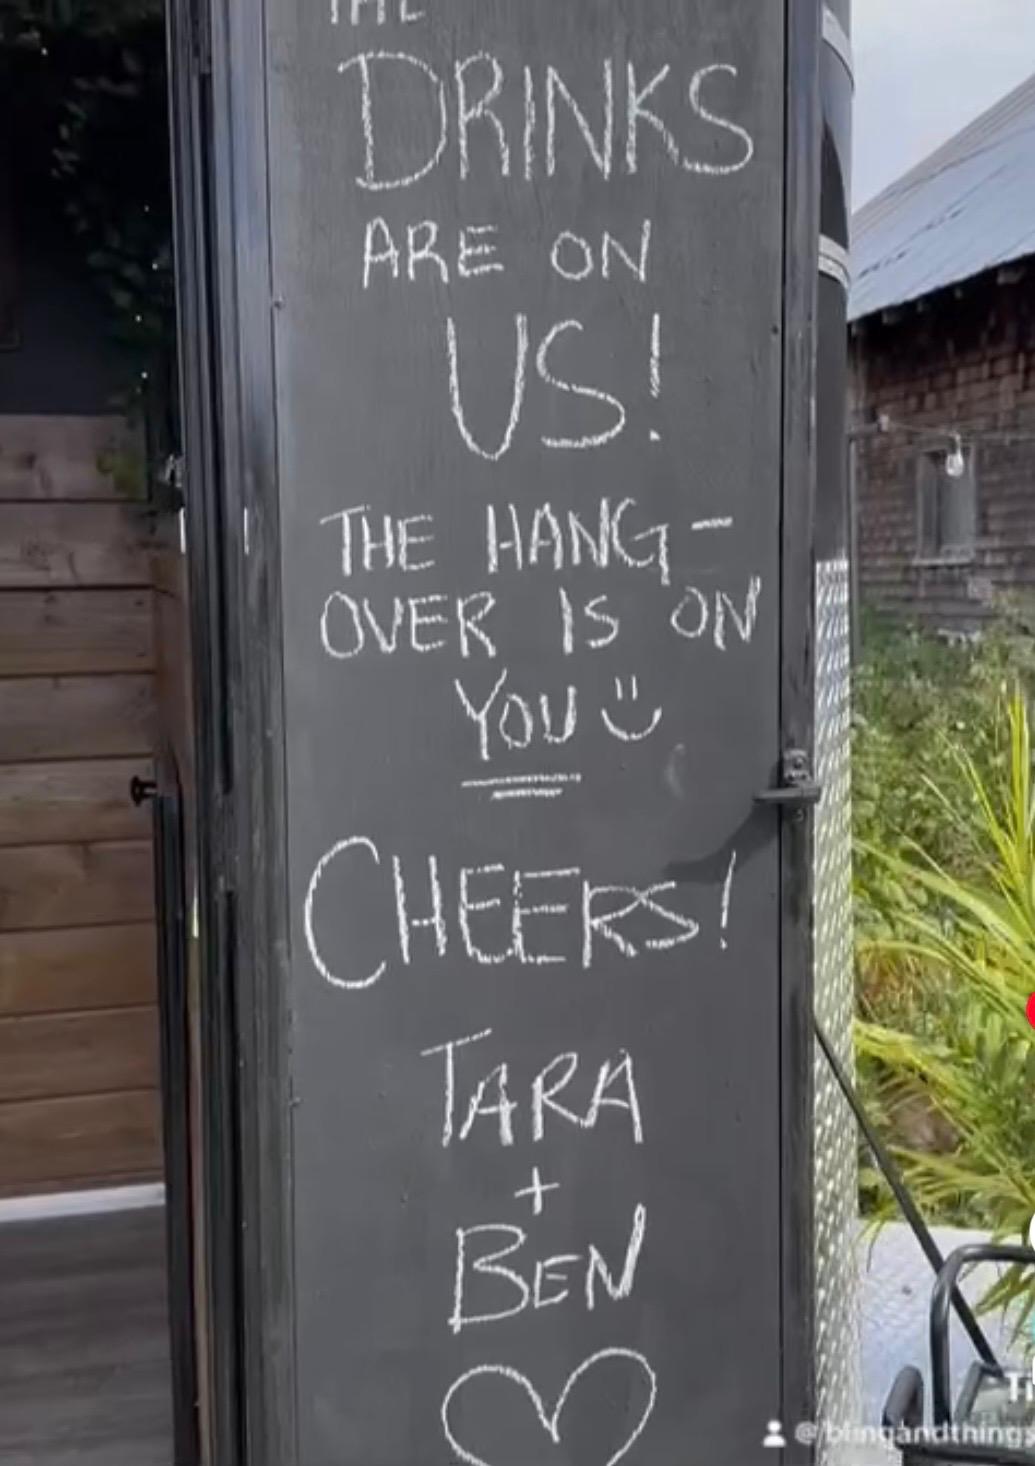 THE
DRINKS
ARE ON
US!
THE HANG-
OVER IS ON
YOU
CHEERS!
TARA
+
BEN
@blingandthings